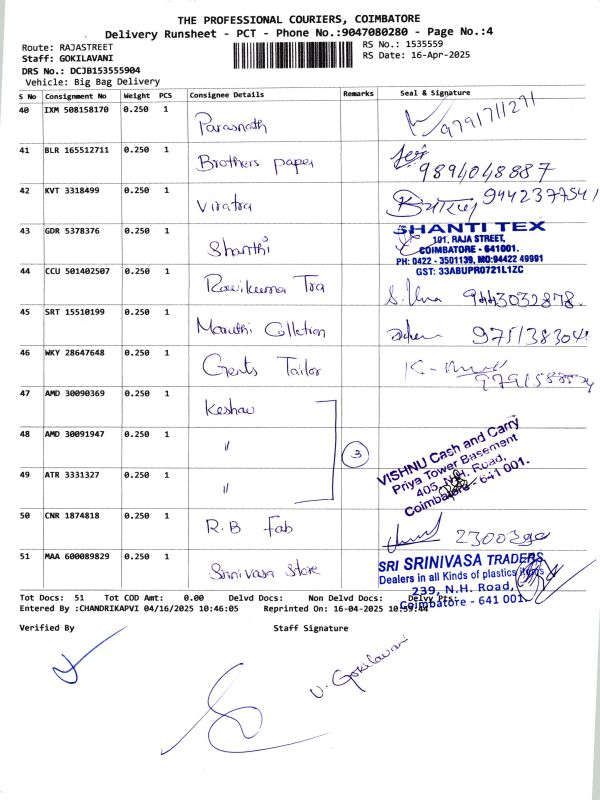 THE PROFESSIONAL COURIERS, COIMBATORE
Delivery Runsheet - PCT - Phone No.:9047080280 - Page No.:4
Route: RAJASTREET
RS No.: 1535559
Staff: GOKILAVANI
RS Date: 16-Apr-2025
DRS No.: DCJB153555904
Vehicle: Big Bag Delivery
S No Consignment No Weight PCS Consignee Details Remarks Seal & Signature
40 IXM 508158170 0.250 1 Parasnath 9791711271
41 BLR 165512711 0.250 1 Brothers paper 9894048887
42 KVT 3318499 0.250 1 Viratra 9442377541
43 GDR 5378376 0.250 1 Shanthi
SHANTI TEX
101, RAJA STREET,
COIMBATORE - 641001.
PH: 0422 - 3501139, MO:94422 49991
GST: 33ABUPR0721L1ZC
44 CCU 501402507 0.250 1 Ravikumar Tra 9443032878.
45 SRT 15510199 0.250 1 Maruthi Colletion 975138304
46 WKY 28647648 0.250 1 Gents Tailor
47 AMD 30090369 0.250 1 Keshav
48 AMD 30091947 0.250 1 " 3
VISHNU Cash and Carry
Priya Tower Basement
405, N.H. Road,
Coimbatore - 641 001.
49 ATR 3331327 0.250 1 "
50 CNR 1874818 0.250 1 R.B Fab
51 MAA 600089829 0.250 1 Srinivasa Store
SRI SRINIVASA TRADERS
Dealers in all Kinds of plastics items
239, N.H. Road,
Coimbatore - 641 001.
Tot Docs: 51 Tot COD Amt: 0.00 Delvd Docs: Non Delvd Docs: Delvy Pts:
Entered By :CHANDRIKAPVI 04/16/2025 10:46:05 Reprinted On: 16-04-2025 10:59:44
Verified By Staff Signature
V. Gokilavani